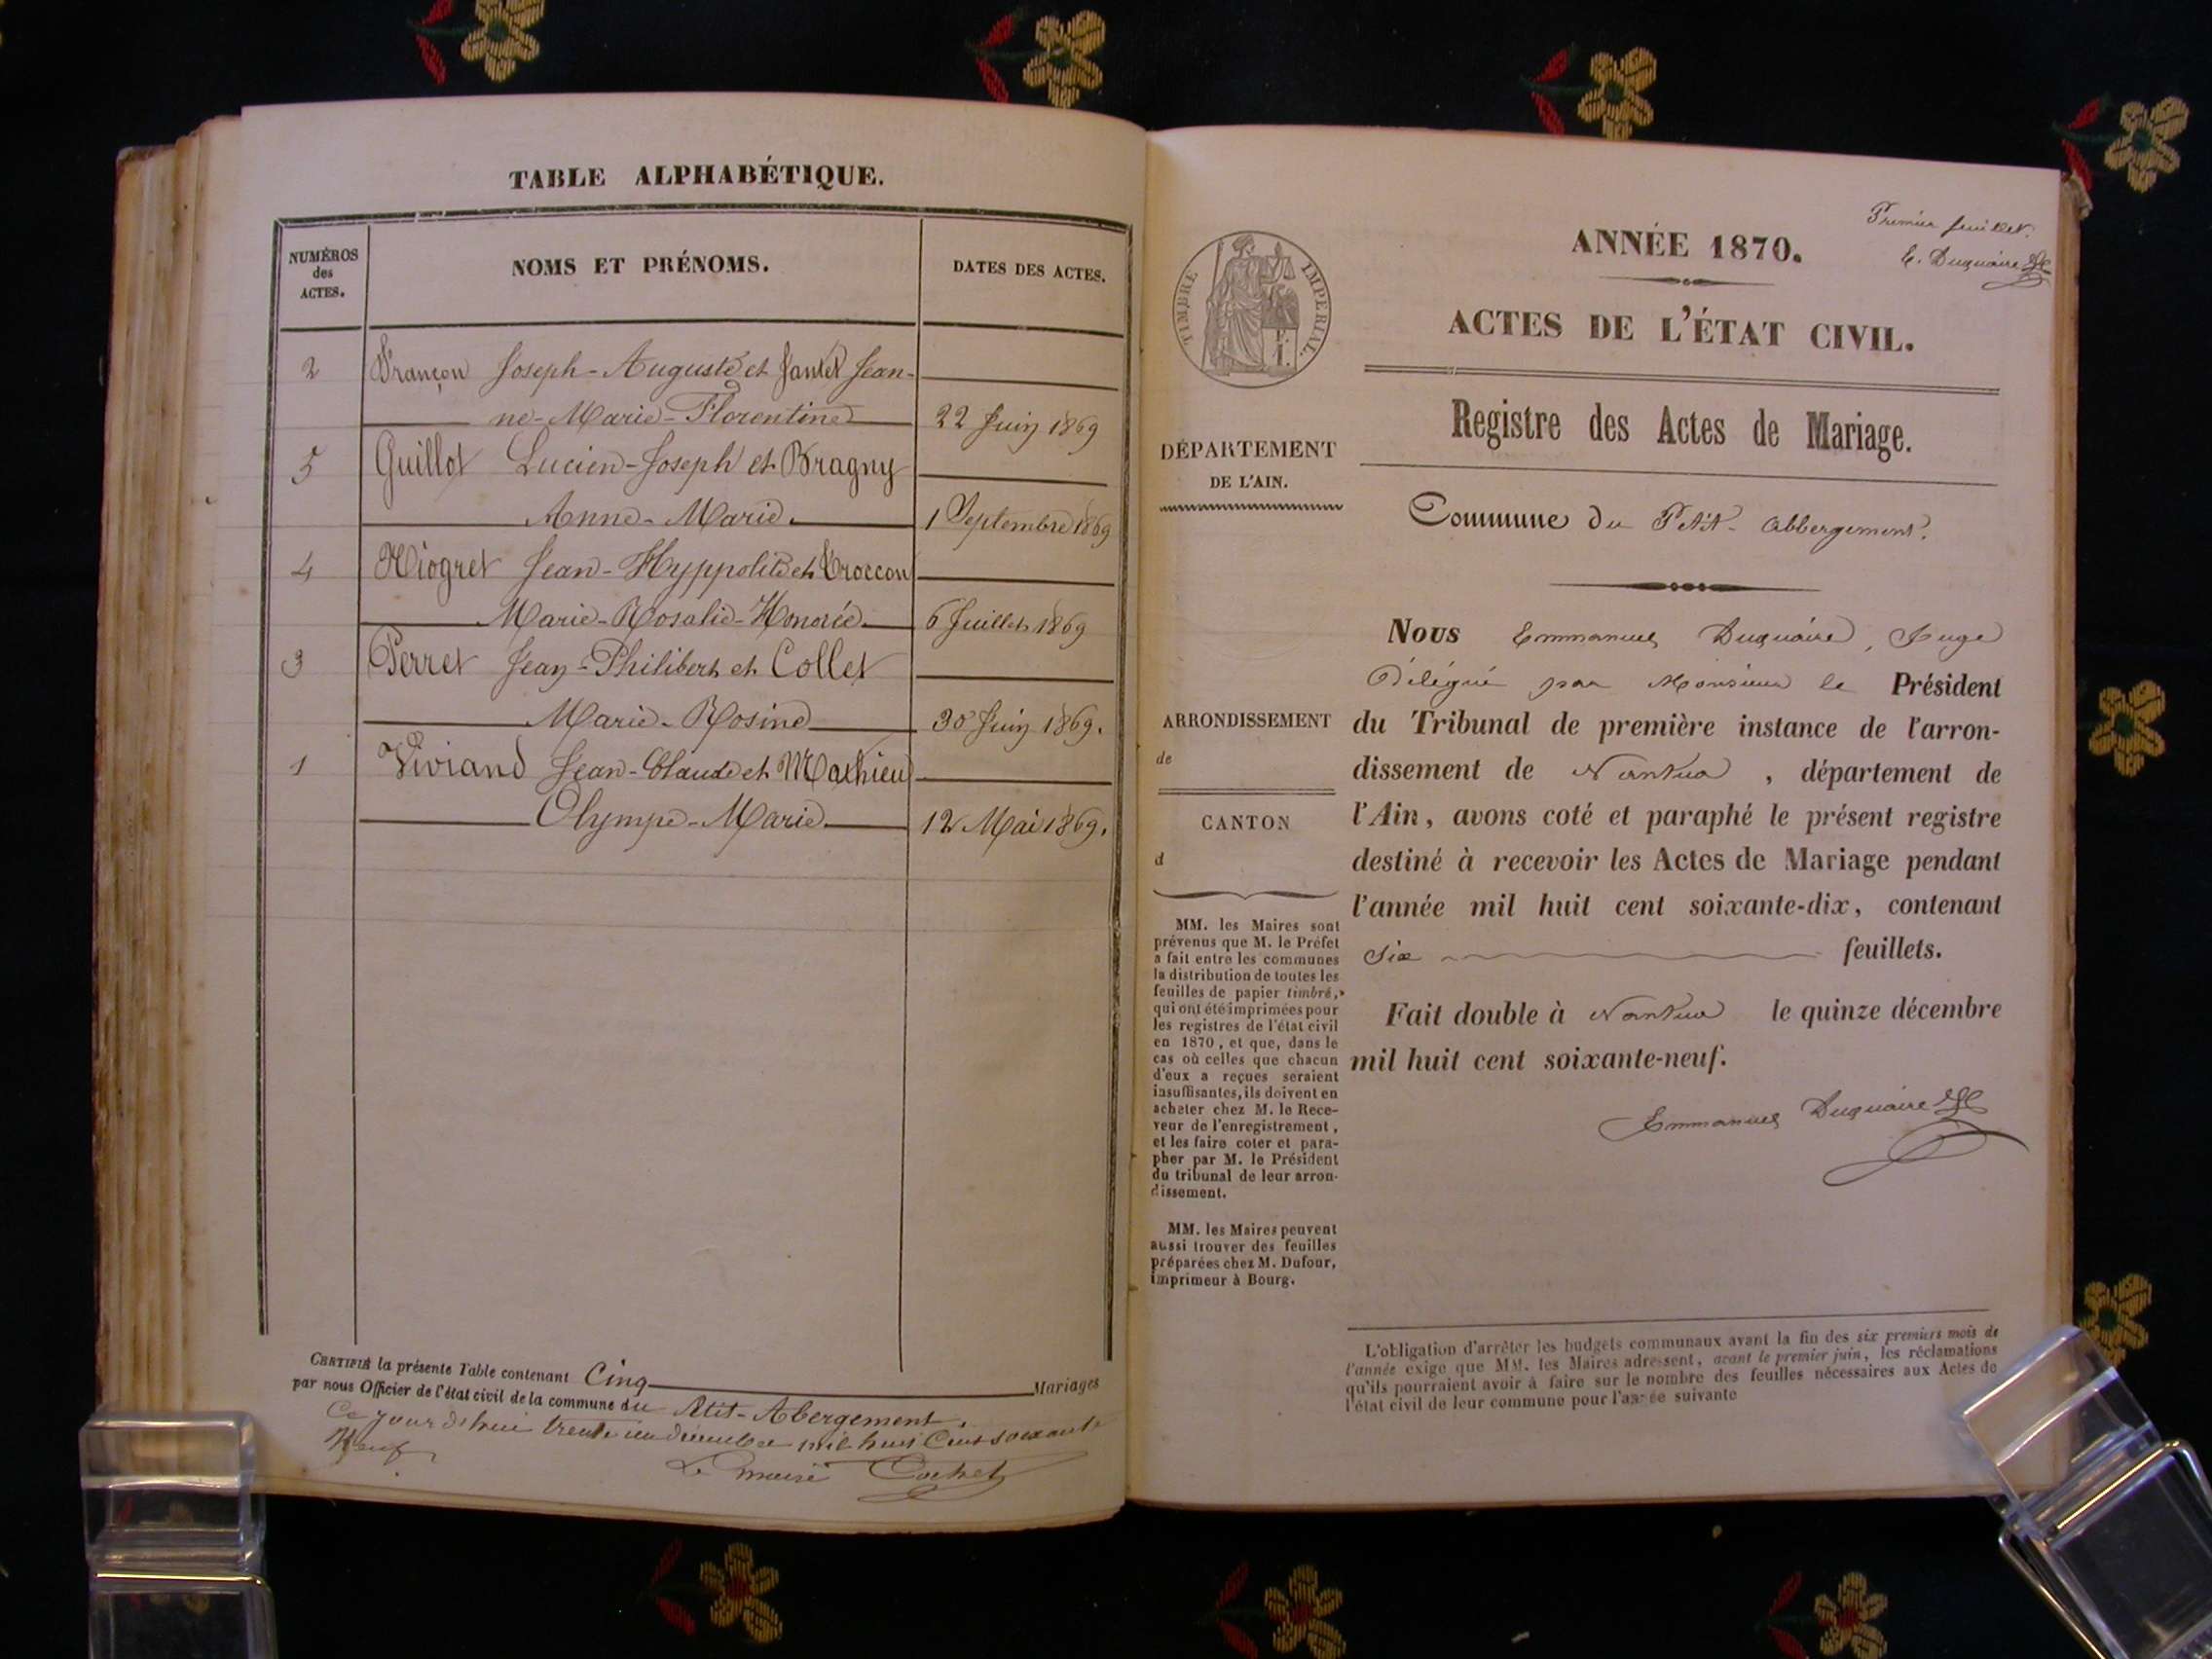 TABLE ALPHABÉTIQUE.
NUMÉROS
des
ACTES.
NOMS ET PRÉNOMS.
DATES DES ACTES.
2 Françon Joseph-Auguste et Jantet Jean-
ne-Marie-Florentine 22 Juin 1869
5 Guillot Lucien-Joseph et Bragny
Anne-Marie. 1 Septembre 1869
4 Miogret Jean-Hyppolite et Troccon
Marie-Rosalie-Honorée 6 Juillet 1869
3 Perret Jean-Philibert et Collet
Marie-Rosine 30 Juin 1869.
1 Viviand Jean-Claude et Mathieu
Olympe-Marie 12 Mai 1869.
CERTIFIÉ la présente Table contenant Cinq Mariages
par nous Officier de l'état civil de la commune du Petit-Abergement.
Ce jourd'hui trente un decembre mil huit Cent soixante
Neuf
Le maire Cochet
Premier feuillet.
E. Duquaire
ANNÉE 1870.
ACTES DE L'ÉTAT CIVIL.
Registre des Actes de Mariage.
Commune du Petit-Abbergement.
TIMBRE IMPÉRIAL.
DÉPARTEMENT
DE L'AIN.
ARRONDISSEMENT
de
CANTON
d
MM. les Maires sont
prévenus que M. le Préfet
a fait entre les communes
la distribution de toutes les
feuilles de papier timbré,
qui ont été imprimées pour
les registres de l'état civil
en 1870, et que, dans le
cas où celles que chacun
d'eux a reçues seraient
insuffisantes, ils doivent en
acheter chez M. le Rece-
veur de l'enregistrement,
et les faire coter et para-
pher par M. le Président
du tribunal de leur arron-
dissement.
MM. les Maires peuvent
aussi trouver des feuilles
préparées chez M. Dufour,
imprimeur à Bourg.
Nous Emmanuel Duquaire, Juge
Délégué par Monsieur le Président
du Tribunal de première instance de l'arron-
dissement de Nantua, département de
l'Ain, avons coté et paraphé le présent registre
destiné à recevoir les Actes de Mariage pendant
l'année mil huit cent soixante-dix, contenant
six feuillets.
Fait double à Nantua le quinze décembre
mil huit cent soixante-neuf.
Emmanuel Duquaire
L'obligation d'arrêter les budgets communaux avant la fin des six premiers mois de
l'année exige que MM. les Maires adressent, avant le premier juin, les réclamations
qu'ils pourraient avoir à faire sur le nombre des feuilles nécessaires aux Actes de
l'état civil de leur commune pour l'année suivante